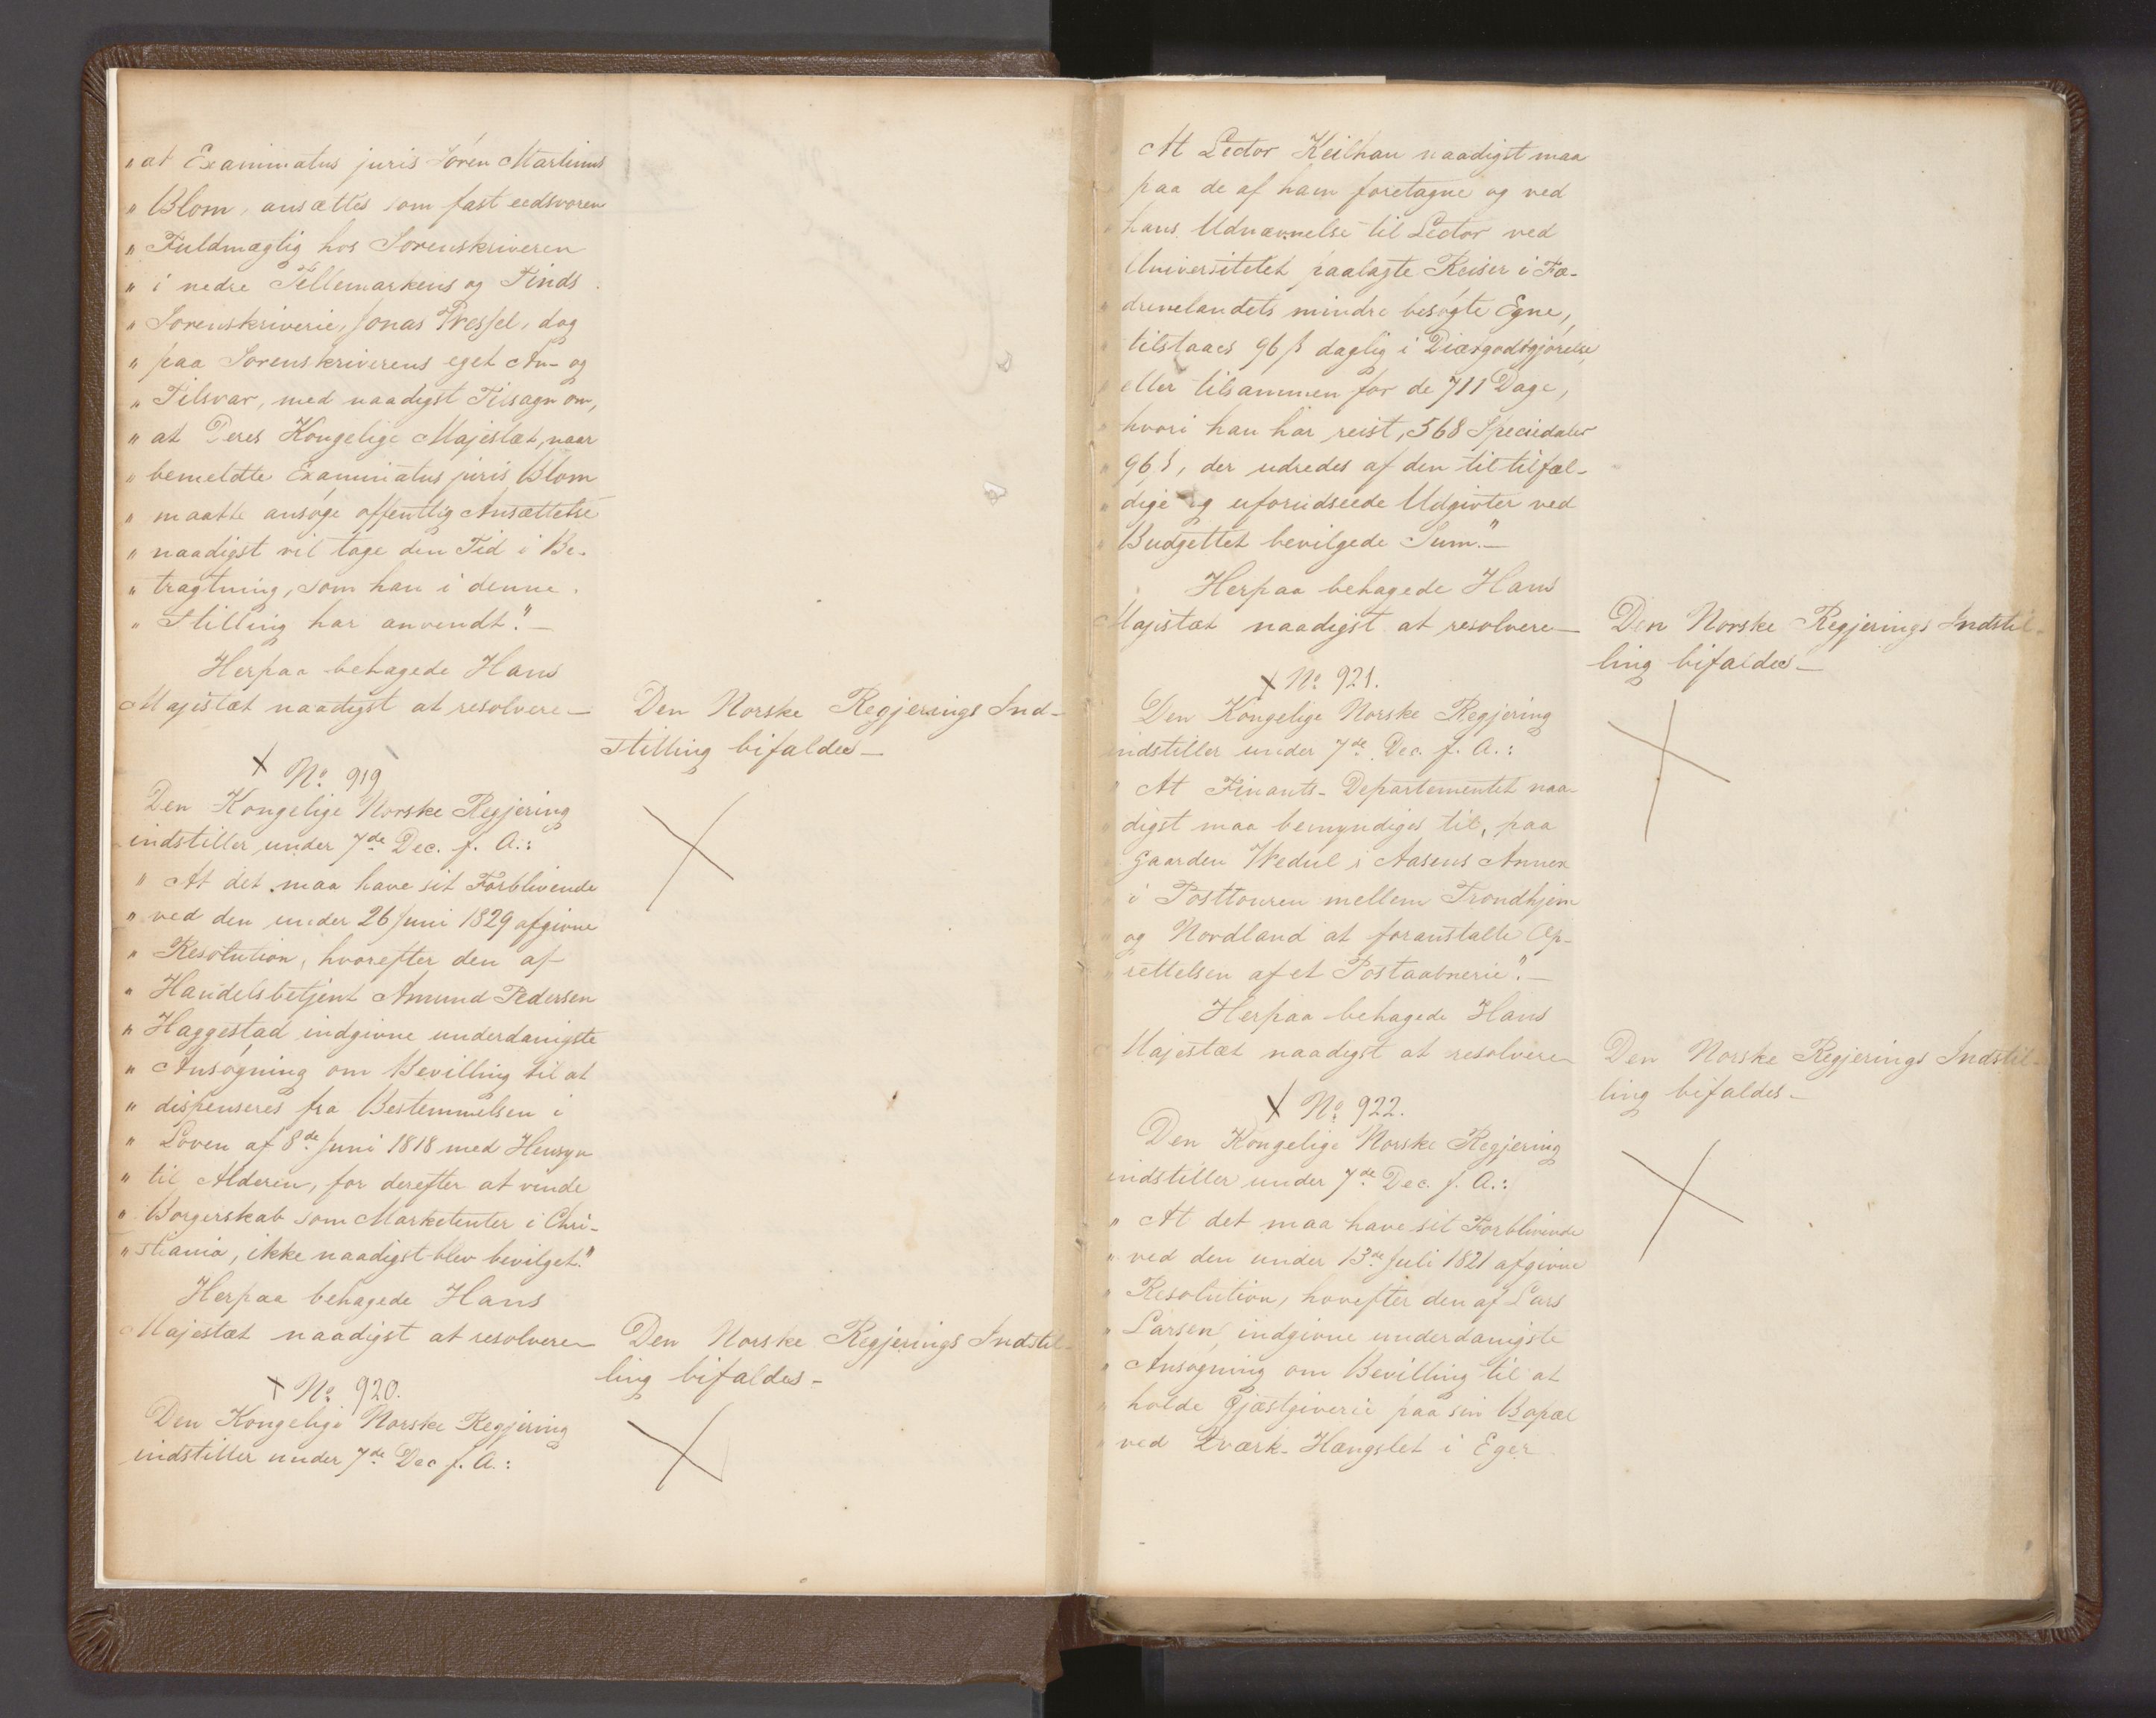 "at Examinatus juris Sören Martinus
" Blom, ansættes som fast eedsvoren
" Fuldmægtig hos Sorenskriveren
" i nedre Tellemarkens og Tinds
" Sorenskriverie, Jonas Wessel, dog
" paa Sorenskriverens eget An- og
" Tilsvar, med naadigst Tilsagn om,
" at Deres Kongelige Majestæt, naar
" bemeldte Examinatus juris Blom
" maatte ansøge offentlig Ansættelse
" naadigst vil tage den Tid i Be-
" tragtning, som han i denne
" Stilling har anvendt". —
Herpaa behagede Hans
Majestæt naadigst at resolvere —
Den Norske Regjerings Ind-
stilling bifaldes —
No. 919
Den Kongelige Norske Regjering
indstiller under 7de Dec. f. A.:
" At det maa have sit Forblivende
" ved den under 26 Juni 1829 afgivne
" Resolution, hvorefter den af
" Handelsbetjent Amund Pedersen
" Haggestad indgivne underdanigste
" Ansøgning om Bevilling til at
" dispenseres fra Bestemmelsen i
" Loven af 8de Juni 1818 med Hensyn
" til Alderen, for derefter at vinde
" Borgerskab som Marketenter i Chri-
" stiania, ikke naadigst blev bevilget."
Herpaa behagede Hans
Majestæt naadigst at resolvere —
Den Norske Regjerings Indstil-
ling bifaldes —
No. 920.
Den Kongelige Norske Regjering
indstiller under 7de Dec f. A.:
At Lector Keilhau naadigst maa
paa de af ham foretagne og ved
hans Udnævnelse til Lector ved
Universitetet paalagte Reiser i Fæ-
" drenelandets mindre besøgte Egne,
" tilstaaes 96 ß daglig i Diætgodtgjørelse,
" eller tilsammen for de 711 Dage,
" hvori han har reist, 568 Speciedaler
" 96 ß, der udredes af den til tilfæl-
" dige og uforudseede Udgivter ved
" Budgettet bevilgede Sum". —
Herpaa behagede Hans
Majestæt naadigst at resolvere —
Den Norske Regjerings Indstil-
ling bifaldes —
No. 921.
Den Kongelige Norske Regjering
indstiller under 7de Dec. f. A.:
" At Finants-Departementet naa-
" digst maa bemyndiges til, paa
" Gaarden Wedul i Aasens Annex
" i Posttouren mellem Trondhjem
" og Nordland at foranstalte Op-
" rettelsen af et Postaabnerie". —
Herpaa behagede Hans
Majestæt naadigst at resolvere —
Den Norske Regjerings Indstil-
ling bifaldes —
No. 922.
Den Kongelige Norske Regjering
indstiller under 7de Dec. f. A.:
" At det maa have sit Forblivende
" ved den under 13de Juli 1821 afgivne
" Resolution, hvorefter den af Lars
" Larsen indgivne underdanigste
" Ansøgning om Bevilling til at
" holde Gjæstgiverie paa sin Bopæl
" ved Hængslet i Eger